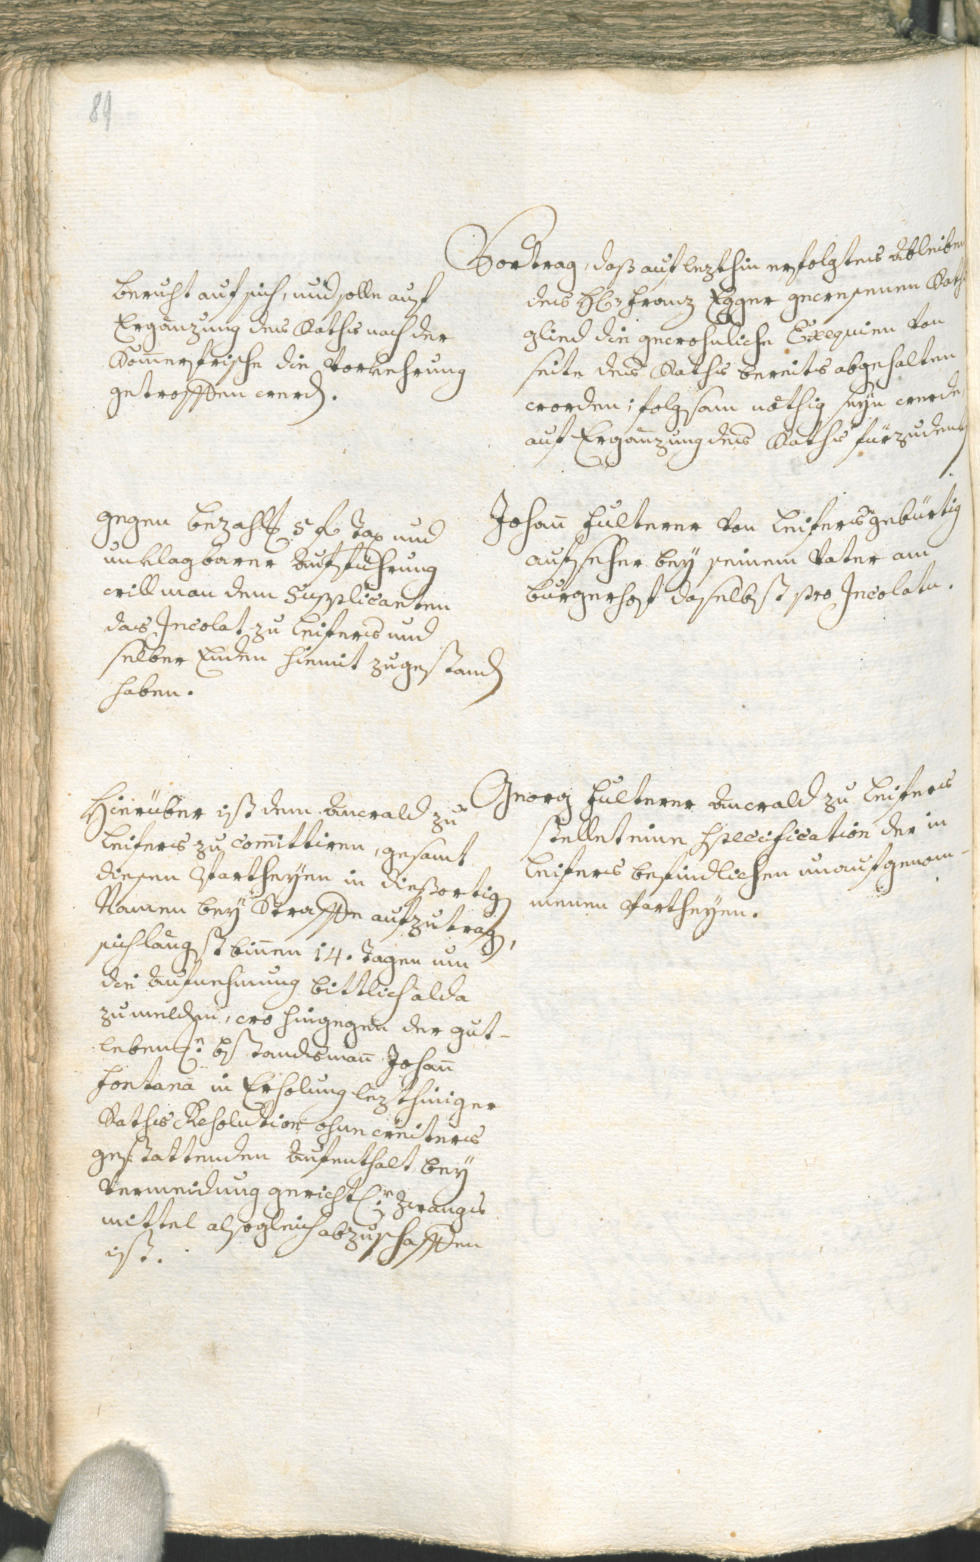 89
Vortrag, daß auf lezthin erfolgtes Ableiben
des H: Franz Egger gewesenen Raths-
glied die gewohnliche Exequien von
seite des Raths bereits abgehalten
worden; folgsam nöthig seyn werde
auf Ergänzung des Raths fürzudenkh
beruht auf sich, und solle auf
Ergänzung des Raths nach der
Sommerfrische die Vorkehrung
getroffen werdn.
Johann Fulterer von Leifers gebürtig
aufseher bey seinem Vater am
Burgerhof daselbst pro Incolatu.
gegen bezahlt 5 f Tax und
unklagbarer Aufführung
will man dem Supplicanten
das Incolat zu Leifers und
selber Enden hiemit zugestandn
haben.
Georg Fulterer Anwald zu Leifers
stellet eine Specification der in
Leifers befindlichen unaufgenom-
menen Partheyen.
Hierüber ist dem Anwald zu
Leifers zu committiren, gesamt
diesen Partheyen in dießortign
Namen bey Straffe aufzutragn,
sich längst binnen 14. Tagen um
die Aufnehmung bittlich alda
zu melden, wo hingegen der gut-
leben bstandsmann Johann
Fontana in Erholung lezthiniger
Raths Resolution ohne weiters
gestattenden Aufenthalt bey
Vermeidung gerichtl: Zwangs
mittel alsogleich abzuschaffen
ist.